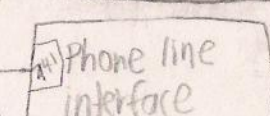 Phone line
interface